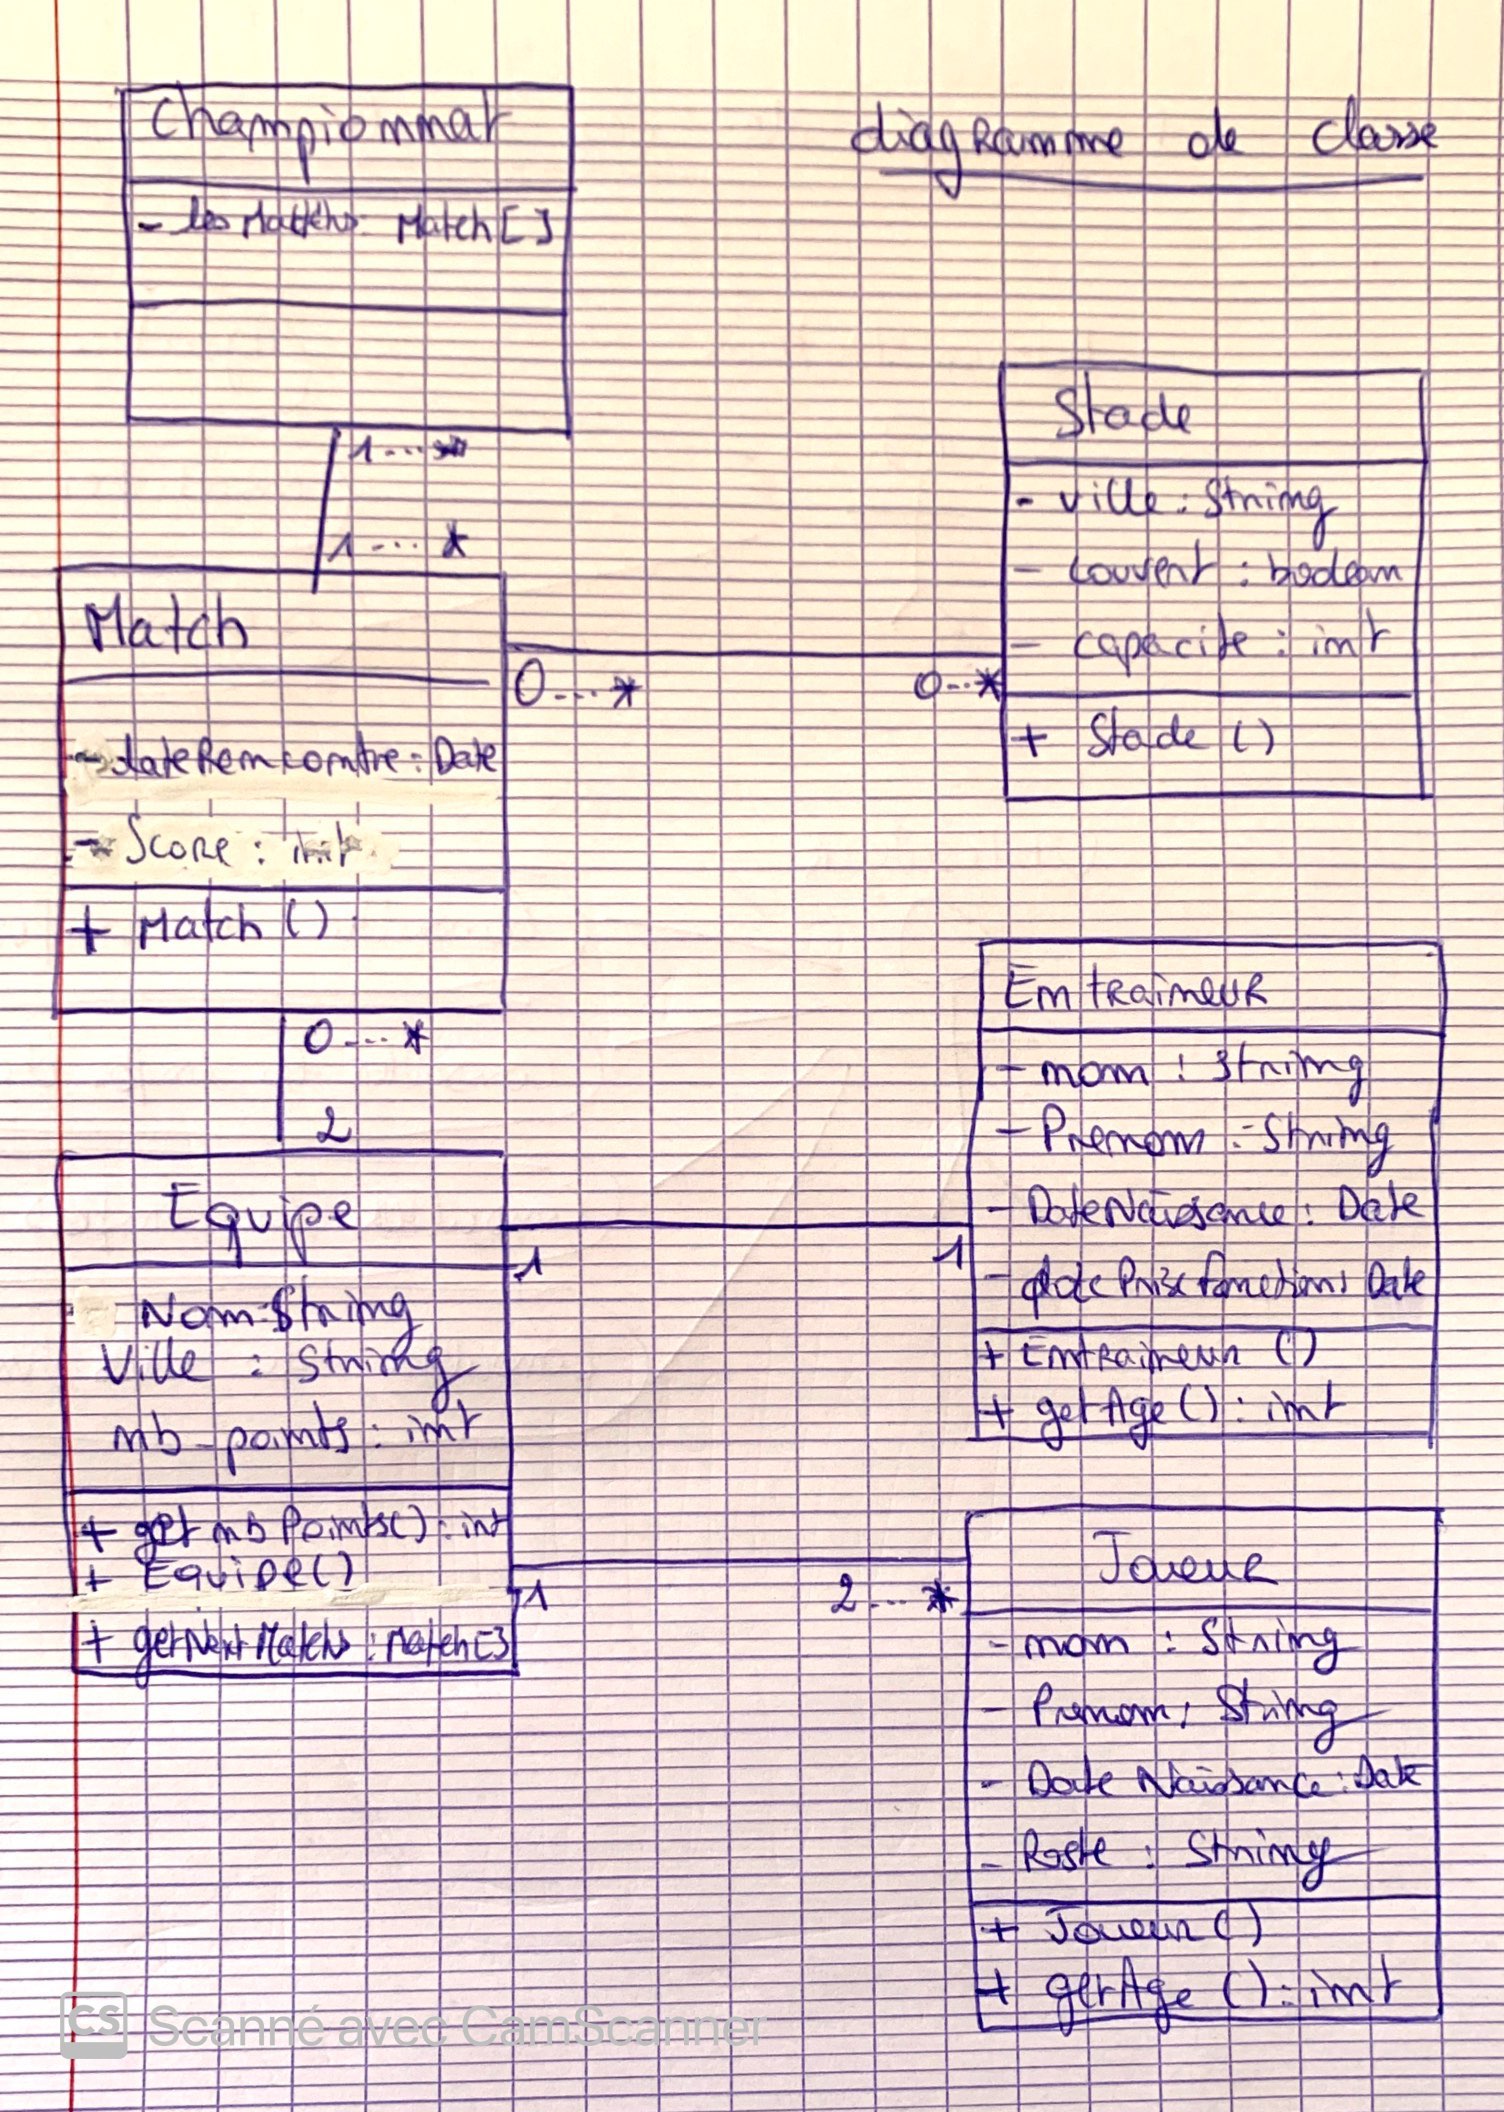 diagramme de classe
Championnat
- lesMatchs: Match[]
1...*
1...*
Match
- dateRencontre: Date
- Score: int
+ Match()
0...*
0..*
Stade
- ville: String
- couvert: boolean
- capacite: int
+ Stade()
0...*
2
Equipe
Nom: String
Ville: String
nb_points: int
+ get nb Points(): int
+ Equipe()
+ getNextMatchs: Match[]
1
1
Entraineur
- nom: String
- Prenom: String
- DateNaissance: Date
- date Prise fonctions Date
+ Entraineur()
+ getAge(): int
1
2...*
Joueur
- nom: String
- Prenom: String
- Date Naissance: Date
- Poste: String
+ Joueur()
+ getAge(): int
CS Scanné avec CamScanner